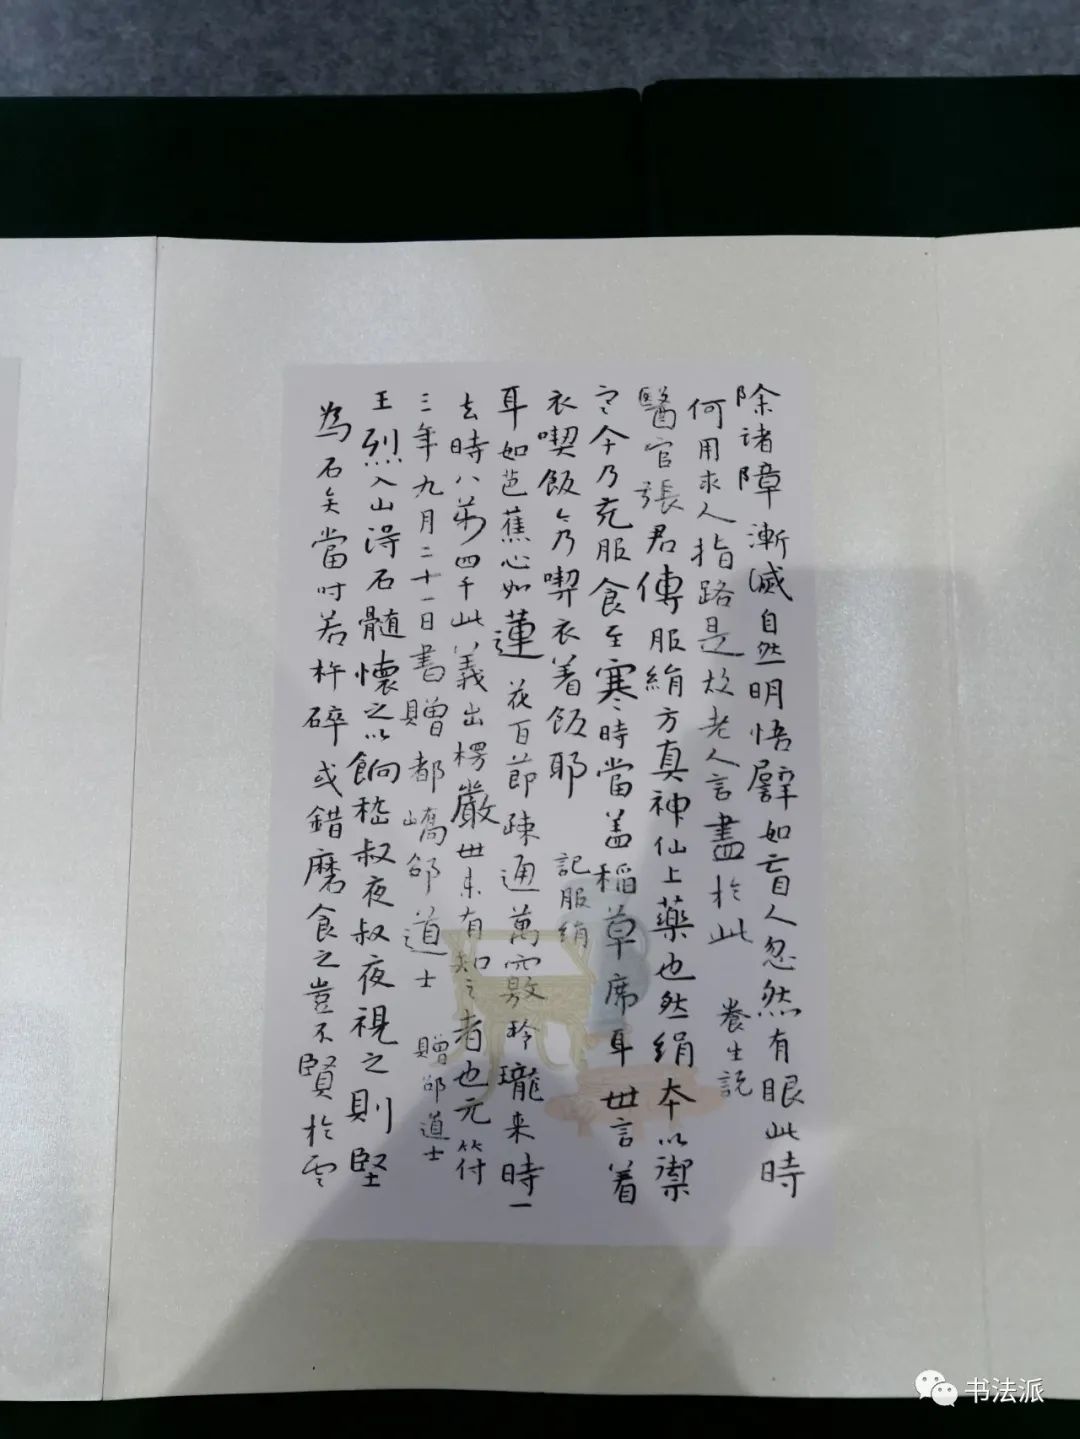 除诸障漸滅自然明悟譬如盲人忽然有眼此時
何用求人指路是故老人言盡於此 養生説
醫官張君傳服絹方真神仙上藥也然絹本以禦
寒今乃充服食至寒時當盖稲草席耳世言着
衣喫飯今乃喫衣着飯耶 記服絹
耳如芭蕉心如蓮花百節疎通萬竅玲瓏来時一
去時八萬四千此義出楞嚴世未有知之者也元符
三年九月二十一日書贈都嶠邵道士 贈邵道士
王烈入山得石髓懷之以餉嵇叔夜叔夜視之則堅
為石矣當时若杵碎或錯磨食之豈不賢於雲
书法派